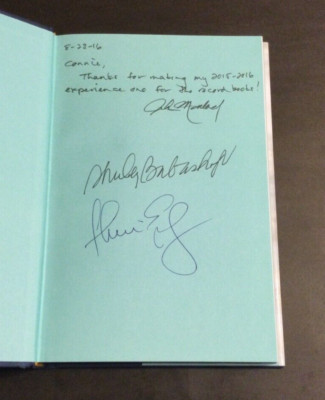 5-23-16
Connie,
Thanks for making my 2015-2016
experience one for the record books!
Shirley Babashoff